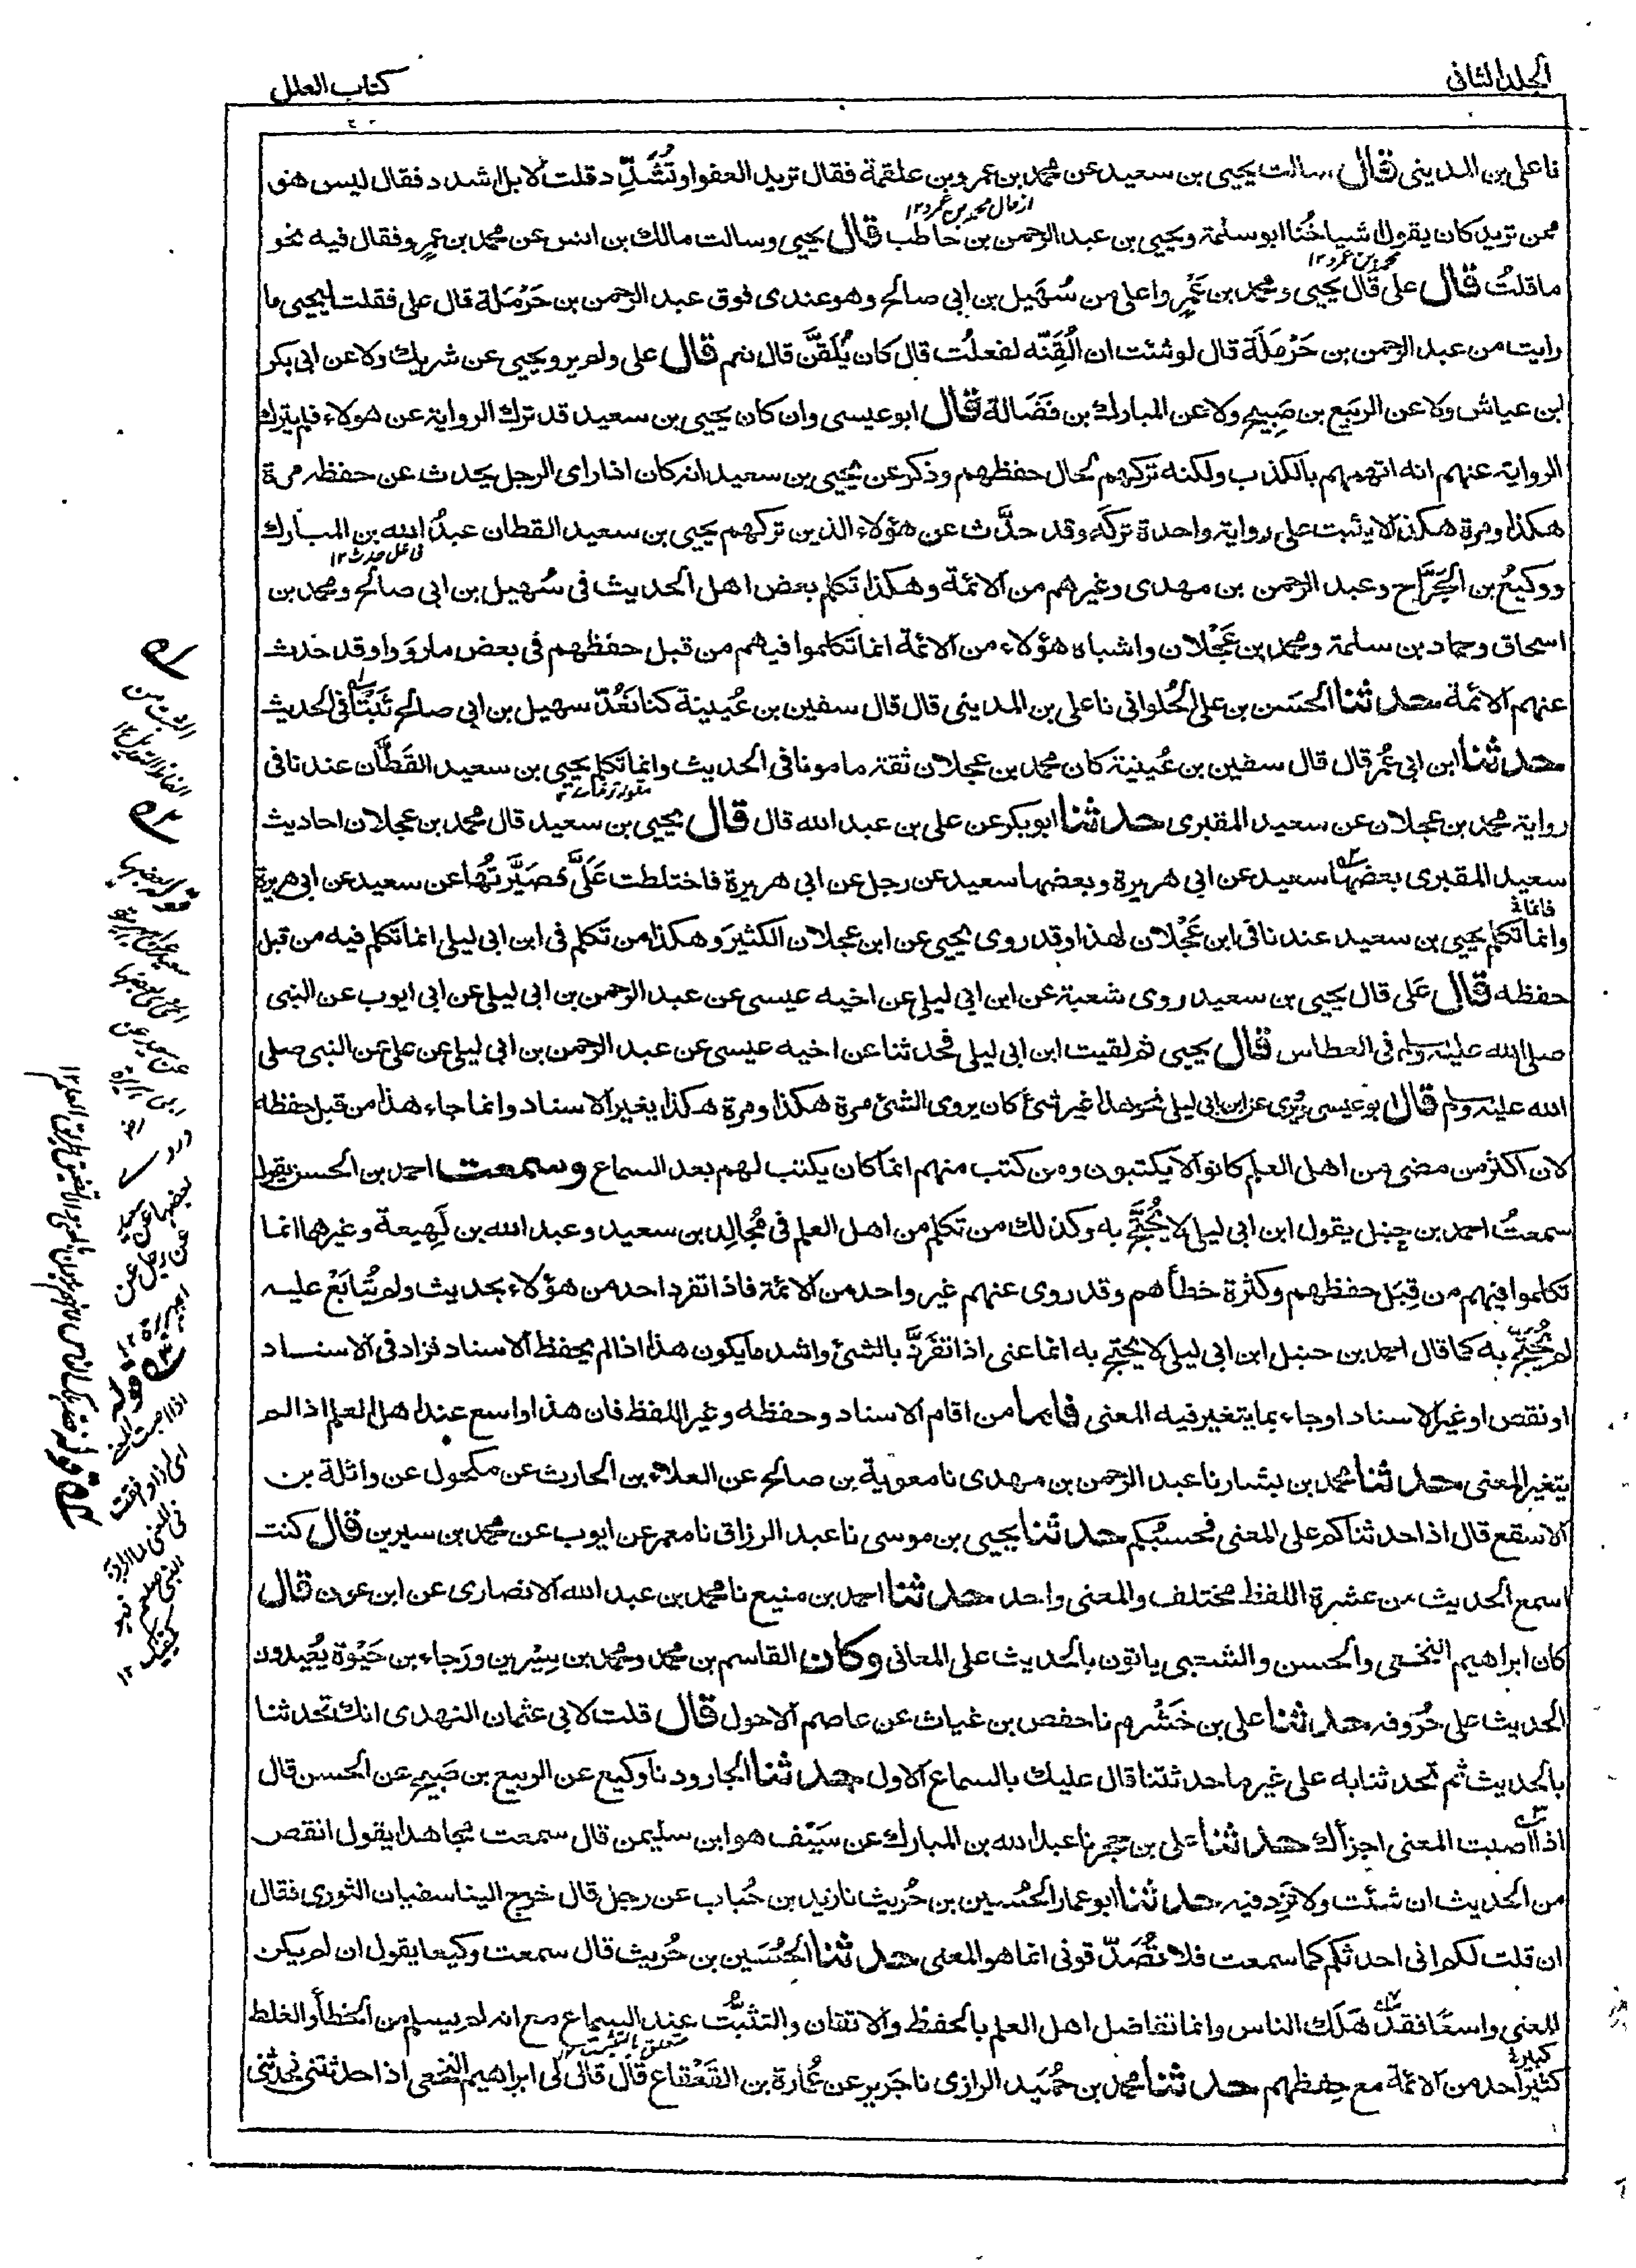 الجلد الثانى
كتاب العلل
نا على بن المدينى قال سالت يحيى بن سعيد عن محمد بن عمرو بن علقمة فقال تريد العفو او تُشَدِّد قلت لا بل اشدد فقال ليس هو
ممن تريد كان يقول اشياخُنا ابو سلمة ويحيى بن عبد الرحمن بن حاطب قال يحيى وسالت مالك بن انس عن محمد بن عمرو فقال فيه نحو
ما قلتُ قال على قال يحيى ومحمد بن عَمْرو اعلى من سُهَيل بن ابى صالح وهو عندى فوق عبد الرحمن بن حَرْمَلة قال على فقلت ليحيى ما
رايت من عبد الرحمن بن حَرْمَلَة قال لو شئت ان اُلَقِّنه لفعلْت قال كان يُلَقَّن قال نعم قال على ولم يرو يحيى عن شريك ولا عن ابى بكر
ابن عياش ولا عن الربيع بن صَبِيح ولا عن المبارك بن فَضَالة قال ابو عيسى وان كان يحيى بن سعيد قد ترك الرواية عن هولاء فلم يترك
الرواية عنهم انه اتهمهم بالكذب ولكنه تركهم لحال حفظهم وذكر عن يحيى بن سعيد انه كان اذا راى الرجل يحدث عن حفظه مرة
هكذا ومرة هكذا لا يثبت على رواية واحدة تركه وقد حدَّث عن هؤلاء الذين تركهم يحيى بن سعيد القطان عبدُ الله بن المبارك
ووكيعُ بن الجَرَّاح وعبد الرحمن بن مهدى وغيرهم من الائمة وهكذا تكلم بعض اهل الحديث فى سُهيل بن ابى صالح ومحمد بن
اسحاق وحماد بن سلمة ومحمد بن عَجْلان واشباه هؤلاء من الائمة انما تكلموا فيهم من قبل حفظهم فى بعض ما رووا وقد حدث
عنهم الائمة حدثنا الحسَن بن على الحُلوانى نا على بن المدينى قال قال سفين بن عُيينة كنا نَعُدّ سهيل بن ابى صالح ثَبْتًا فى الحديث
حدثنا ابن ابى عُمر قال قال سفين بن عُيينة كان محمد بن عجلان ثقة مامونا فى الحديث وانما تكلم يحيى بن سعيد القَطَّان عندنا فى
رواية محمد بن عجلان عن سعيد المقبرى حدثنا ابو بكر عن على بن عبد الله قال قال يحيى بن سعيد قال محمد بن عجلان احاديث
سعيد المقبرى بعضها سعيد عن ابى هريرة وبعضها سعيد عن رجل عن ابى هريرة فاختلطت عَلَىَّ فصَيَّرتُها عن سعيد عن ابى هريرة
وانما تكلم يحيى بن سعيد عندنا فى ابن عَجْلان لهذا وقد روى يحيى عن ابن عجلان الكثيرَ وهكذا من تكلم فى ابن ابى ليلى انما تكلم فيه من قبل
حفظه قال على قال يحيى بن سعيد روى شعبة عن ابن ابى ليلى عن اخيه عيسى عن عبد الرحمن بن ابى ليلى عن ابى ايوب عن النبى
صلى الله عليه وسلم فى العطاس قال يحيى ثم لقيت ابن ابى ليلى فحدثنا عن اخيه عيسى عن عبد الرحمن بن ابى ليلى عن على عن النبى صلى
الله عليه وسلم قال ابو عيسى ويُروى عن ابن ابى ليلى نحو هذا غير شئ كان يروى الشئ مرة هكذا ومرة هكذا يغير الاسناد وانما جاء هذا من قبل حفظه
لان اكثر من مضى من اهل العلم كانوا لا يكتبون ومن كتب منهم انما كان يكتب لهم بعد السماع وسمعت احمد بن الحسن يقول
سمعتُ احمد بن حنبل يقول ابن ابى ليلى لا يُحْتَجُّ به وكذلك من تكلم من اهل العلم فى مُجالِد بن سعيد وعبد الله بن لَهِيعة وغيرهما انما
تكلموا فيهم من قِبَل حفظهم وكثرة خطأهم وقد روى عنهم غير واحد من الائمة فاذا تفرد احد من هؤلاء بحديث ولم يُتابَعْ عليه
لم يُحْتَجّ به كما قال احمد بن حنبل ابن ابى ليلى لا يحتج به انما عنى اذا تفَرَدَّ بالشئ واشد ما يكون هذا اذا لم يحفظ الاسناد فزاد فى الاسناد
او نقص او غير الاسناد او جاء بما يتغير فيه المعنى فاما من اقام الاسناد وحفظه وغير اللفظ فان هذا واسع عند اهل العلم اذا لم
يتغير المعنى حدثنا محمد بن بشار نا عبد الرحمن بن مهدى نا معوية بن صالح عن العلاء بن الحارث عن مكحول عن واثلة بن
الاسقع قال اذا حدثناكم على المعنى فحسبُكم حدثنا يحيى بن موسى نا عبد الرزاق نا معمر عن ايوب عن محمد بن سيرين قال كنت
اسمع الحديث من عشرة اللفظ مختلف والمعنى واحد حدثنا احمد بن منيع نا محمد بن عبد الله الانصارى عن ابن عون قال
كان ابراهيم النخعى والحسن والشعبى ياتون بالحديث على المعانى وكان القاسم بن محمد ومحمد بن سِيْرين ورَجاء بن حَيْوة يُعِيدون
الحديث على حُرُوفه حدثنا على بن خَشْرم نا حفص بن غياث عن عاصم الاحول قال قلت لابى عثمان النهدى انك تحدثنا
بالحديث ثم تحدثنا به على غير ما حدثتنا قال عليك بالسماع الاول حدثنا الجارود نا وكيع عن الربيع بن صَبِيح عن الحسن قال
اذا اصبت المعنى اجزأك حدثنا على بن حجر نا عبد الله بن المبارك عن سَيْف هو ابن سليمن قال سمعت مجاهدا يقول انقص
من الحديث ان شئت ولا تَزِد فيه حدثنا ابو عمار الحُسين بن حُريث نا زيد بن حُباب عن رجل قال خرج الينا سفيان الثورى فقال
ان قلت لكم انى احدثكم كما سمعت فلا تُصَدِّقونى انما هو المعنى حدثنا الحُسَين بن حُريث قال سمعت وكيعا يقول ان لم يكن
المعنى واسعًا فقد هَلَك الناس وانما تفاضل اهل العلم بالحفظ والاتقان والتثبُّت عند السماع مع انه لم يسلم من الخطأ والغلط
كثير احد من الائمة مع حفظهم حدثنا محمد بن حُمَيد الرازى نا جَرير عن عُمارة بن القَعْقاع قال قال لى ابراهيم النخعى اذا حدثتنى فحدثنى